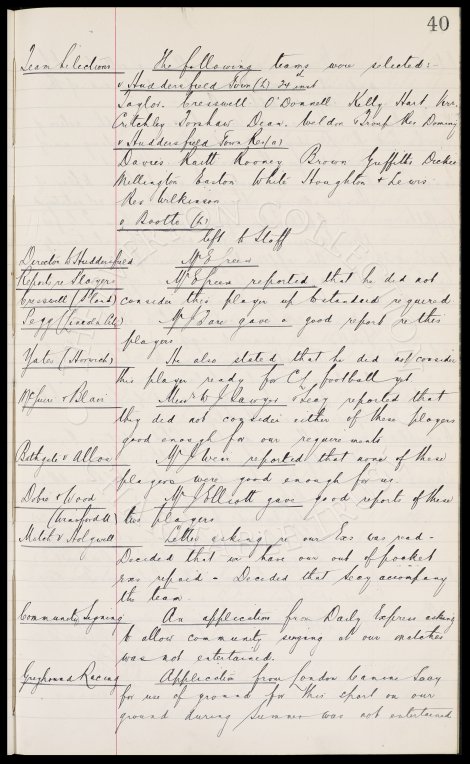 40
Team Selections The following teams were selected:-
v Huddersfield Town (h) 24th inst
Taylor. Cresswell O'Donnell Kelly Hart Kerr.
Critchley Forshaw Dean. Weldon & Troup Res Dominy
v Huddersfield Town Res (a)
Davies Raitt Rooney Brown Griffiths Dickie
Millington Easton White Houghton & Lewis
Res Wilkinson
v Bootle (h)
left to Staff
Director to Huddersfield Mr E Green
Report re Players Mr E Green reported that he did not
Cresswell (Sland) consider this player up to standard required
Legg (Lincoln City) Mr J Fare gave a good report re this
player
Yates (Horwich) He also stated that he did not consider
this player ready for CL football yet
McGuire & Blair Messrs W J Sawyer & Secy reported that
they did not consider either of these players
good enough for our requirements
Bathgate v Alloa Mr J Wear reported that none of these
players were good enough for us.
Dobie & Wood Mr J Ellicott gave good reports of these
two players
Match v Holywell Letter asking re our Exs was read -
Decided that we have our out of pocket
exs repaid - Decided that Secy accompany
the team.
Community Singing An application from Daily Express asking
to allow community singing at our matches
was not entertained.
Greyhound Racing Application from London Canine Socy
for use of ground for this sport on our
ground during summer was not entertained